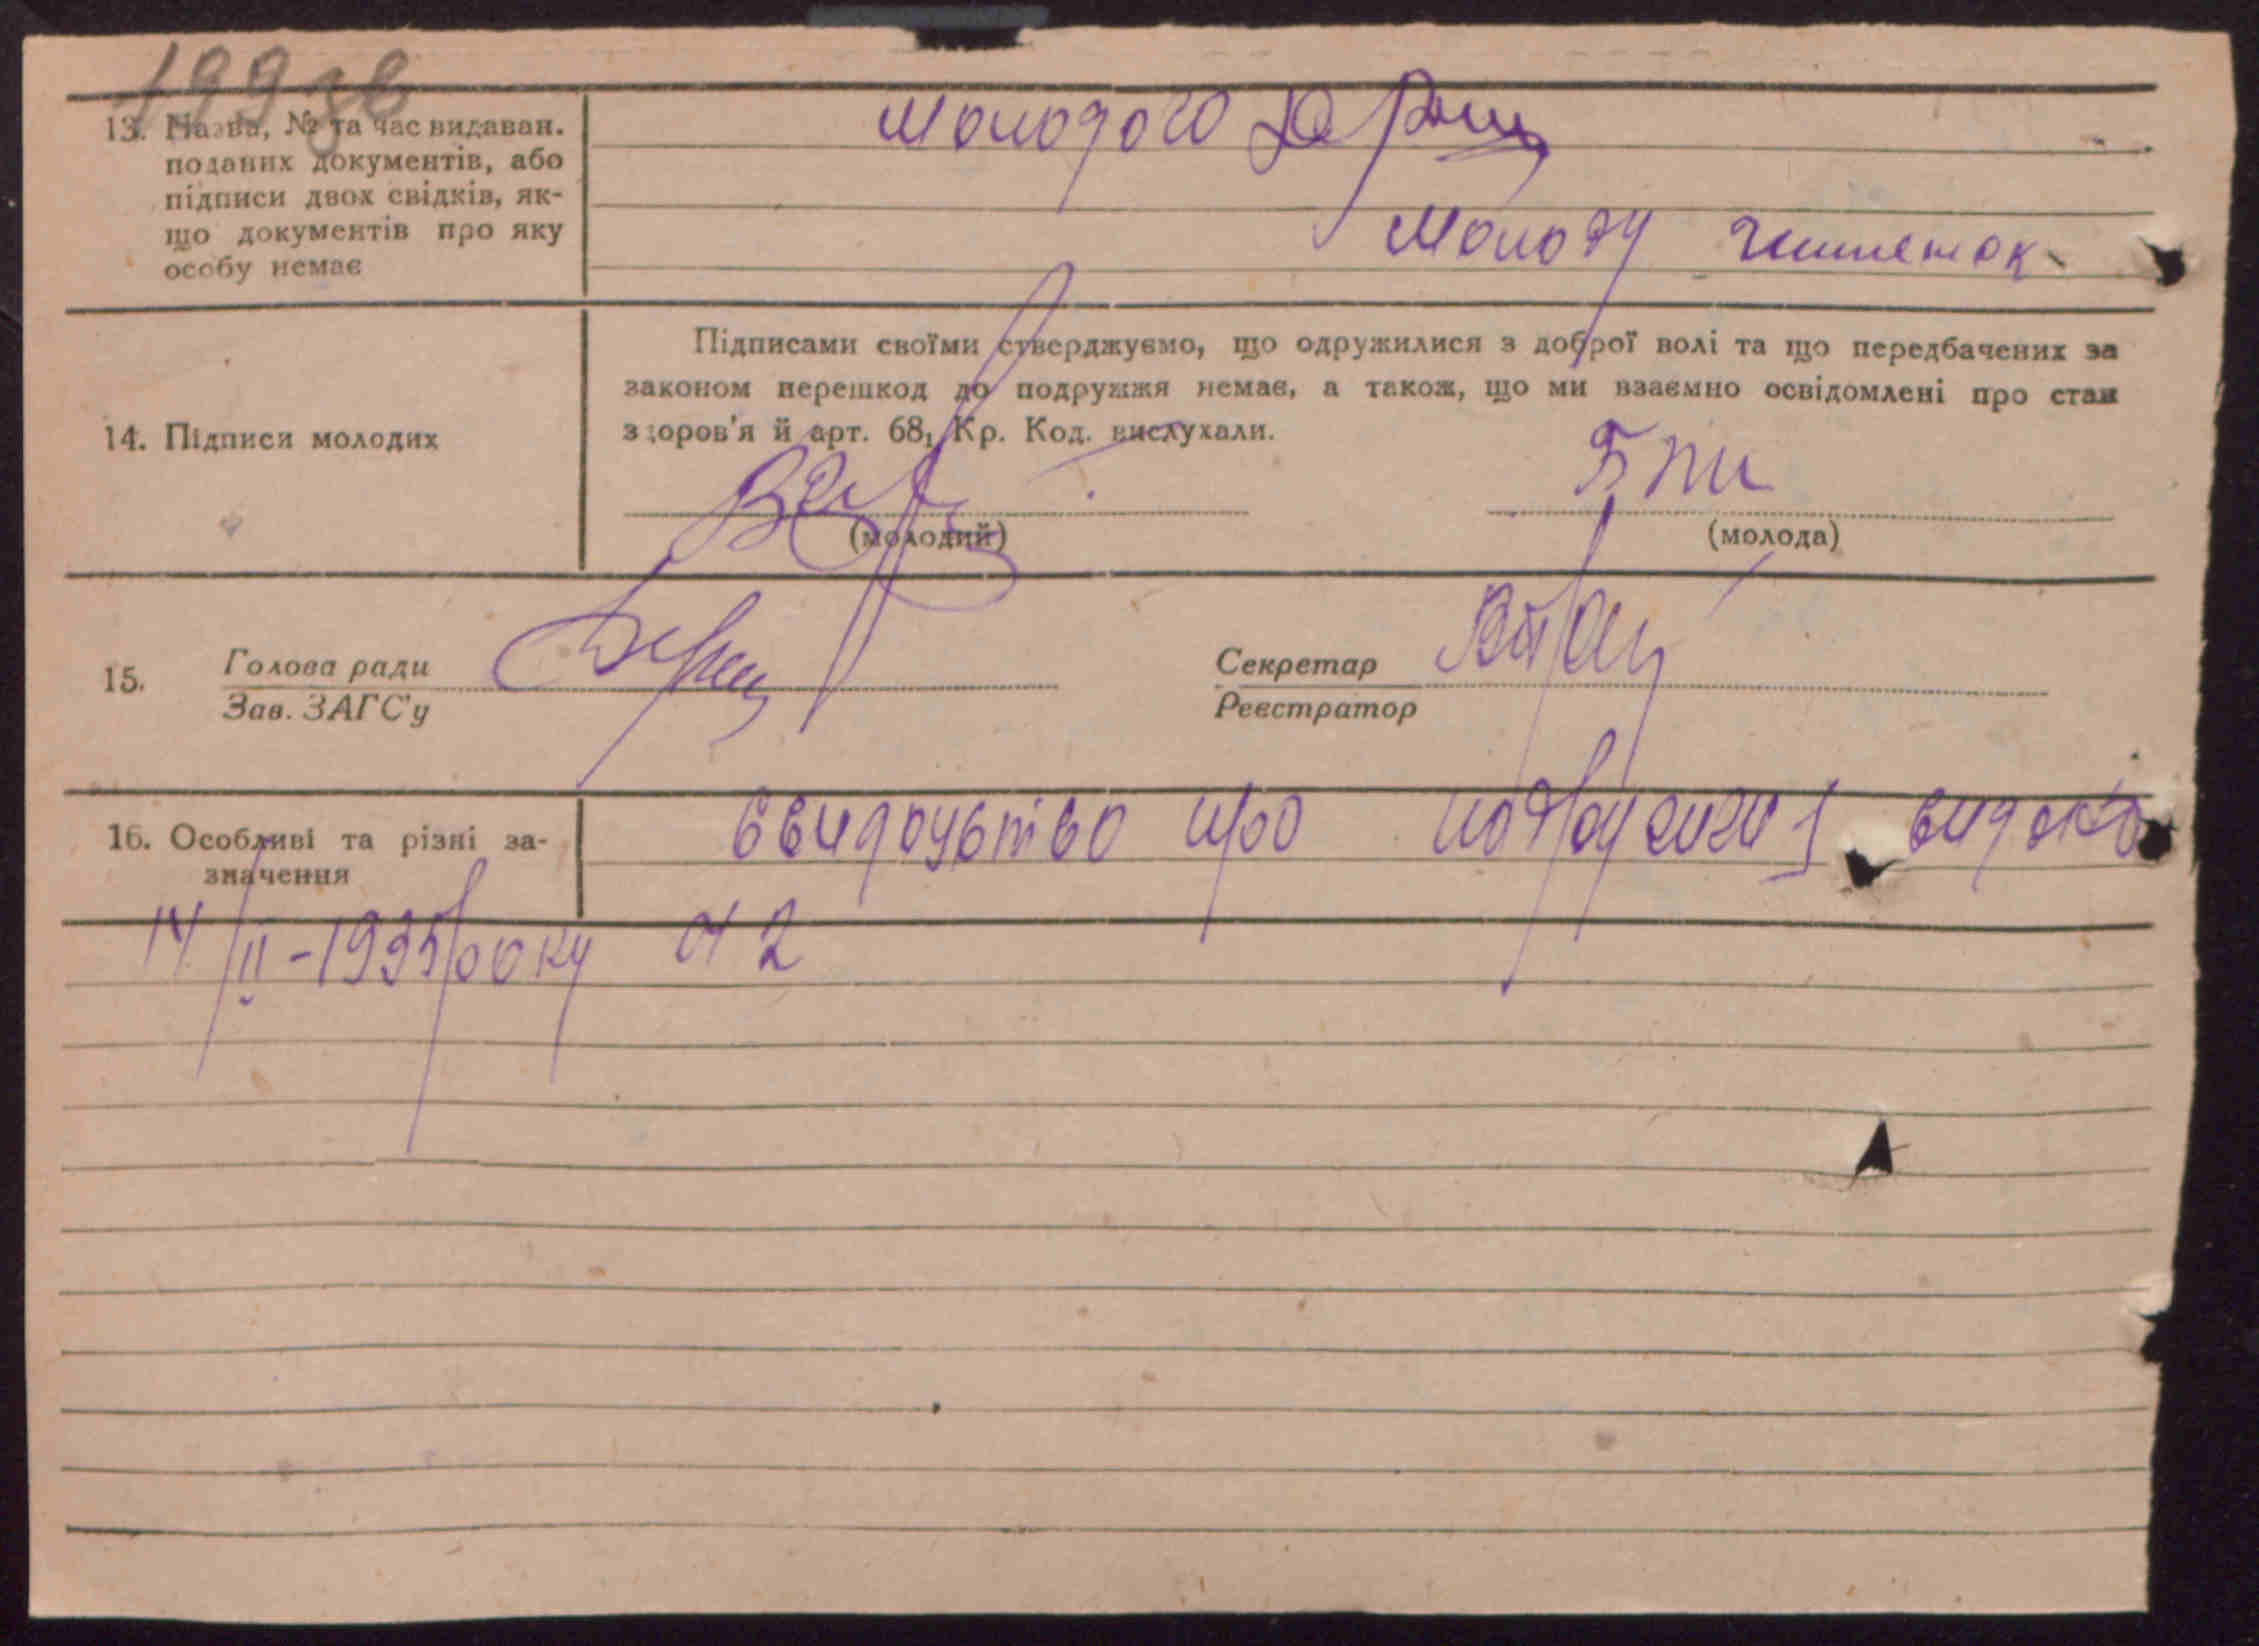 199зв
13. Назва, № та час видаван.
поданих документів, або
підписи двох свідків, як-
що документів про яку
особу немає
Молодого
Молоду
14. Підписи молодих
Підписами своїми стверджуємо, що одружилися з доброї волі та що передбачених за
законом перешкод до подружжя немає, а також, що ми взаємно освідомлені про стан
здоров'я й арт. 68₁ Кр. Код. вислухали.
(молодий)
(молода)
15.
Голова ради
Зав. ЗАГС'у
Секретар
Реєстратор
16. Особливі та різні за-
значення
про
14/II-1935 року № 2